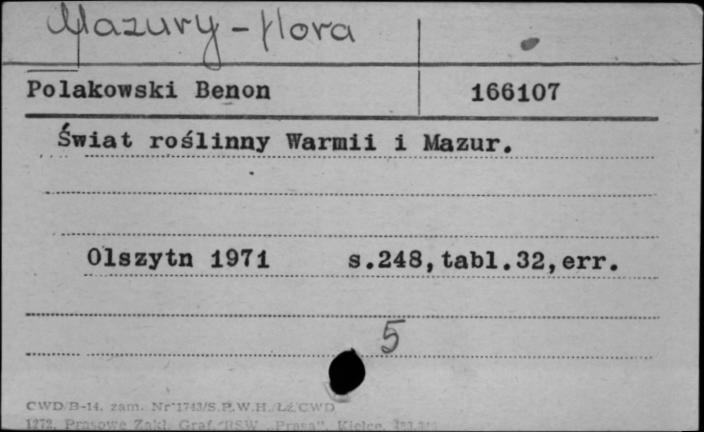 Mazury - flora
Polakowski Benon 166107
Świat roślinny Warmii i Mazur.
Olsztyn 1971 s.248,tabl.32,err.
5
CWD/B-14. zam. Nr 1743/S.P.W.H./Łź/CWD
1272. Prasowe Zakl. Graf. RSW „Prasa", Kielce.